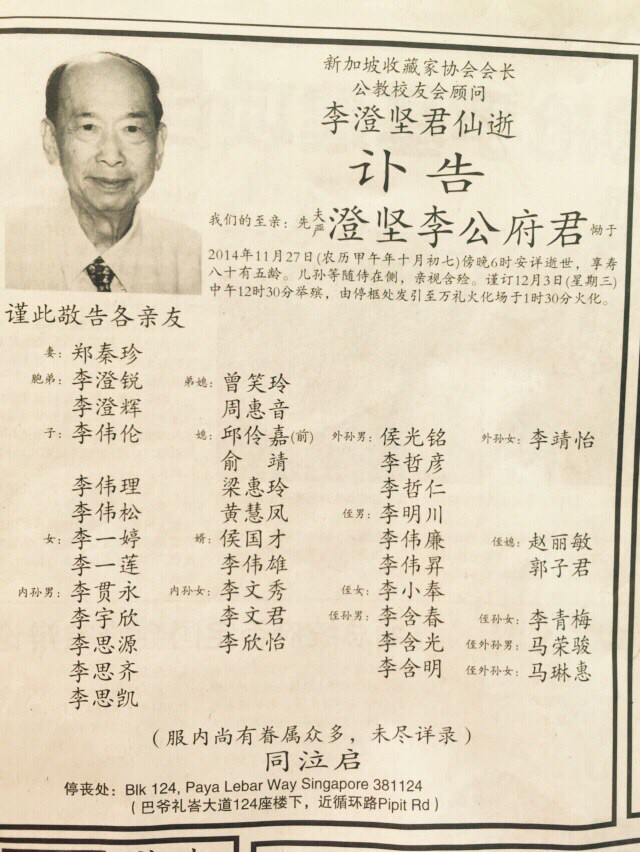 新加坡收藏家协会会长
公教校友会顾问
李澄坚君仙逝
讣告
我们的至亲：先夫严澄坚李公府君恸于
2014年11月27日(农历甲午年十月初七)傍晚6时安详逝世，享寿
八十有五龄。儿孙等随侍在侧，亲视含殓。谨订12月3日(星期三)
中午12时30分举殡，由停柩处发引至万礼火化场于1时30分火化。
谨此敬告各亲友
妻：郑秦珍
胞弟：李澄锐 弟媳：曾笑玲
李澄辉 周惠音
子：李伟伦 媳：邱伶嘉(前) 外孙男：侯光铭 外孙女：李靖怡
俞 靖 李哲彦
李伟理 梁惠玲 李哲仁
李伟松 黄慧凤 侄男：李明川
女：李一婷 婿：侯国才 李伟廉 侄媳：赵丽敏
李一莲 李伟雄 李伟昇 郭子君
内孙男：李贯永 内孙女：李文秀 侄女：李小奉
李宇欣 李文君 侄孙男：李含春 侄孙女：李青梅
李思源 李欣怡 李含光 侄外孙男：马荣骏
李思齐 李含明 侄外孙女：马琳惠
李思凯
(服内尚有眷属众多，未尽详录)
同泣启
停丧处：Blk 124, Paya Lebar Way Singapore 381124
(巴爷礼峇大道124座楼下，近循环路Pipit Rd)